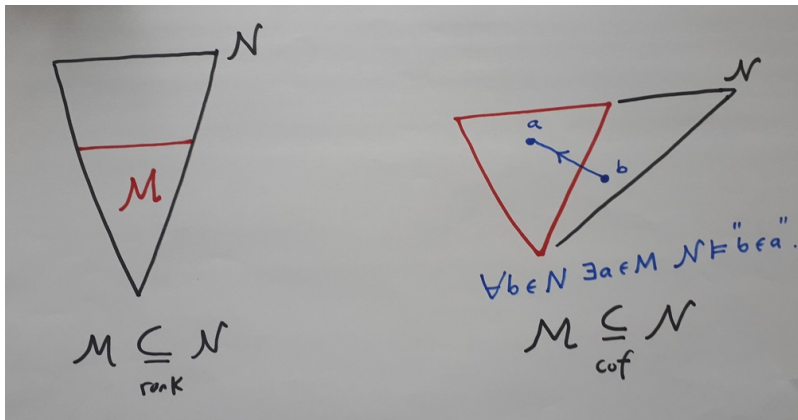 N
M
M ⊆ N
rank
N
a
b
∀b ∈ N ∃a ∈ M N ⊨ "b ∈ a".
M ⊆ N
cof